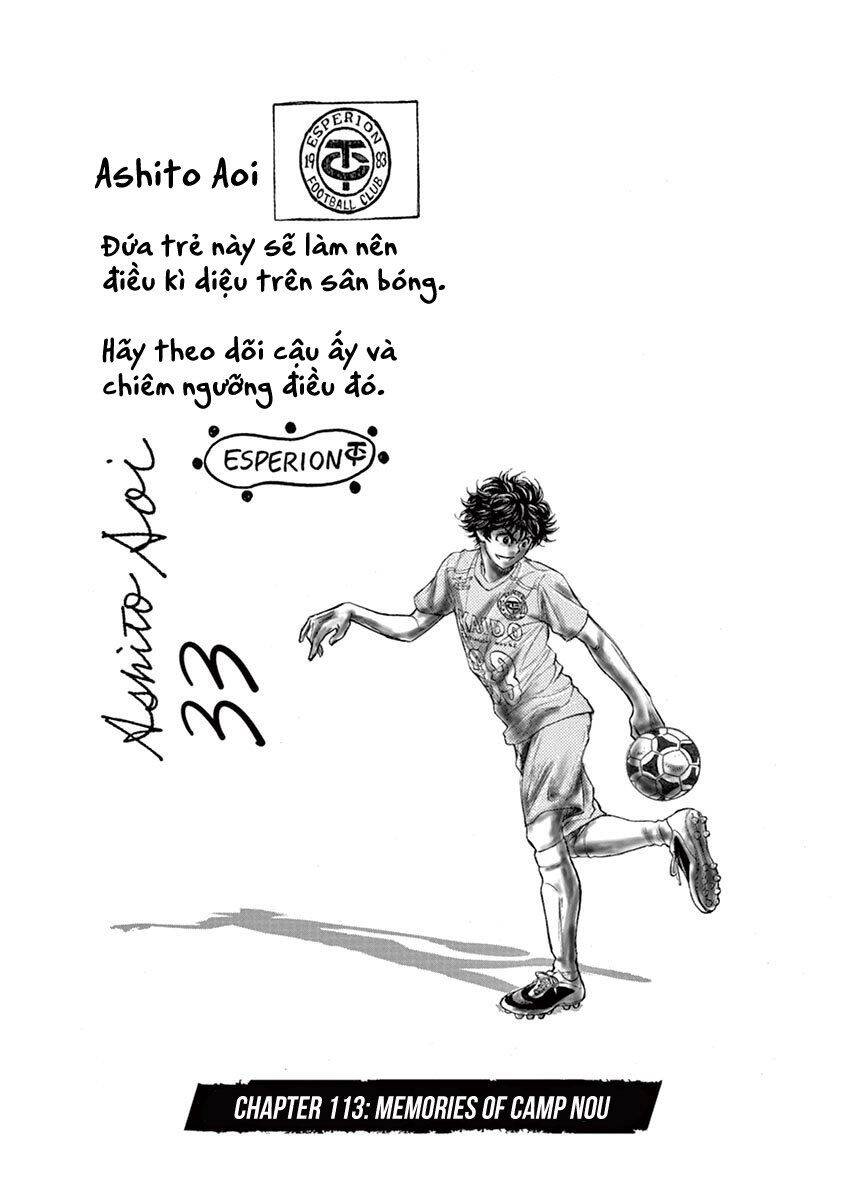 Ashito Aoi
ESPERION
19 TC 83
FOOTBALL CLUB
Đứa trẻ này sẽ làm nên
điều kì diệu trên sân bóng.
Hãy theo dõi cậu ấy và
chiêm ngưỡng điều đó.
ESPERION TC
Ashito Aoi
33
KAIDO
CHAPTER 113: MEMORIES OF CAMP NOU